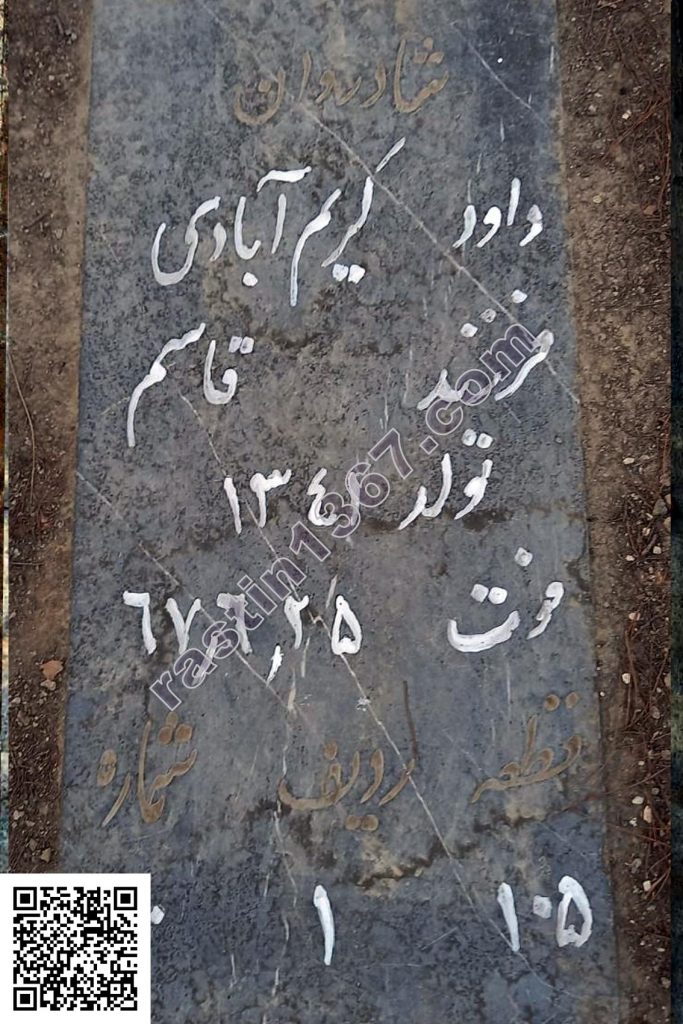 شادروان
داود کریم آبادی
فرزند قاسم
تولد ۱۳۴۱
فوت ۶۷٫۶٫۲۵
قطعه ردیف شماره
۱۰۵ ۱
rastin1367.com